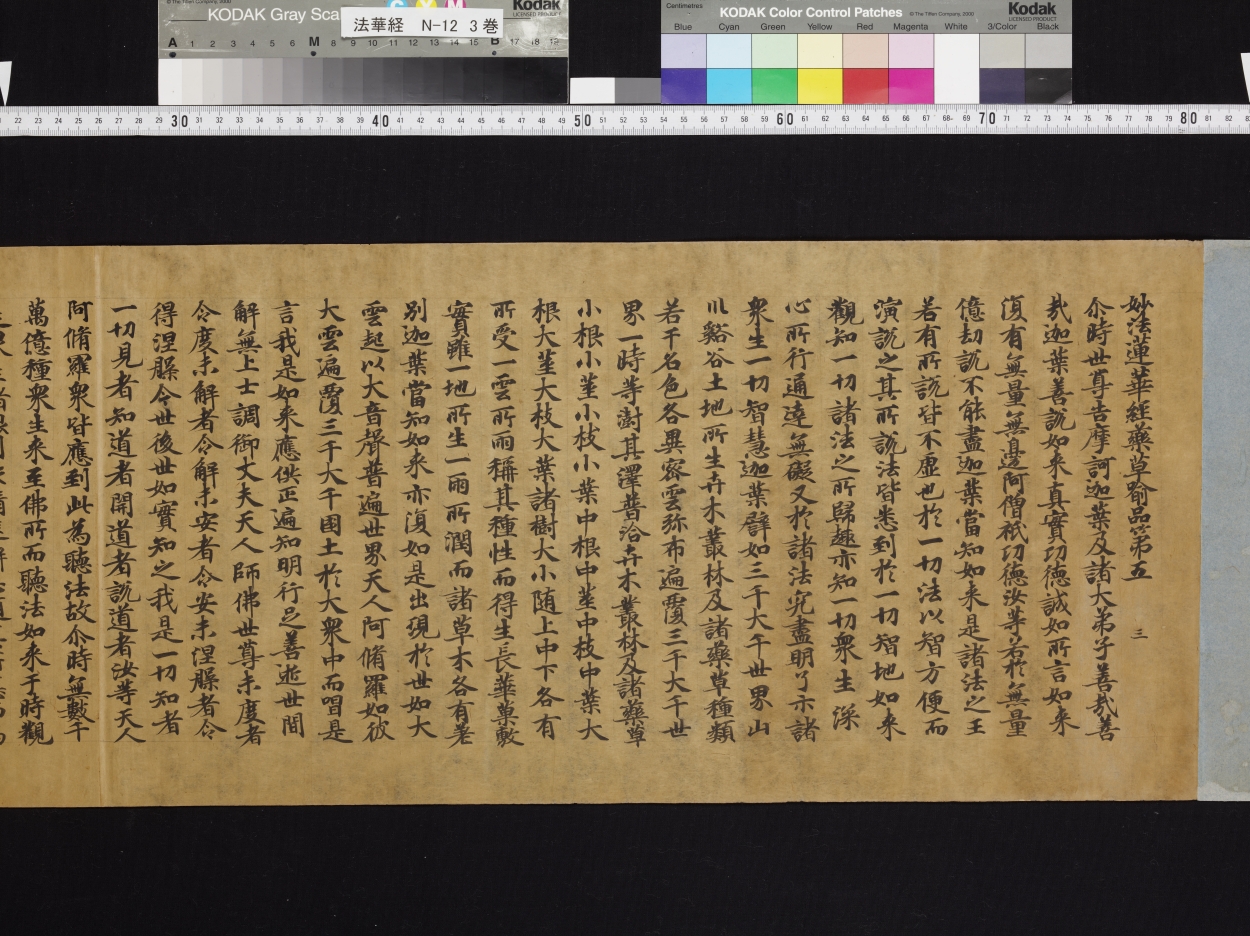 KODAK Gray Sca
法華経 N-12 3巻
Kodak
LICENSED PRODUCT
A 1 2 3 4 5 6 M 8 9 10 11 12 13 14 15 B 17 18 19
Centimetres
KODAK Color Control Patches
© The Tiffen Company, 2000
Kodak
LICENSED PRODUCT
Blue Cyan Green Yellow Red Magenta White 3/Color Black
22 23 24 25 26 27 28 29 30 31 32 33 34 35 36 37 38 39 40 41 42 43 44 45 46 47 48 49 50 51 52 53 54 55 56 57 58 59 60 61 62 63 64 65 66 67 68 69 70 71 72 73 74 75 76 77 78 79 80 81 82
妙法蓮華經藥草喻品第五 三
尒時世尊告摩訶迦葉及諸大弟子善哉善
哉迦葉善說如来真實功德誠如所言如来
復有無量無邊阿僧祇功德汝等若於無量
億劫說不能盡迦葉當知如来是諸法之王
若有所說皆不虛也於一切法以智方便而
演說之其所說法皆悉到於一切智地如来
觀知一切諸法之所歸趣亦知一切衆生深
心所行通達無礙又於諸法究盡明了示諸
衆生一切智慧迦葉譬如三千大千世界山
川谿谷土地所生卉木叢林及諸藥草種類
若干名色各異密雲弥布遍覆三千大千世
界一時等澍其澤普洽卉木叢林及諸藥草
小根小莖小枝小葉中根中莖中枝中葉大
根大莖大枝大葉諸樹大小随上中下各有
所受一雲所雨稱其種性而得生長華菓敷
實雖一地所生一雨所潤而諸草木各有差
別迦葉當知如来亦復如是出現於世如大
雲起以大音聲普遍世界天人阿脩羅如彼
大雲遍覆三千大千国土於大衆中而唱是
言我是如来應供正遍知明行足善逝世間
解無上士調御丈夫天人師佛世尊未度者
令度未解者令解未安者令安未涅槃者令
得涅槃今世後世如實知之我是一切知者
一切見者知道者開道者說道者汝等天人
阿脩羅衆皆應到此為聽法故尒時無數千
萬億種衆生来至佛所而聽法如来于時觀